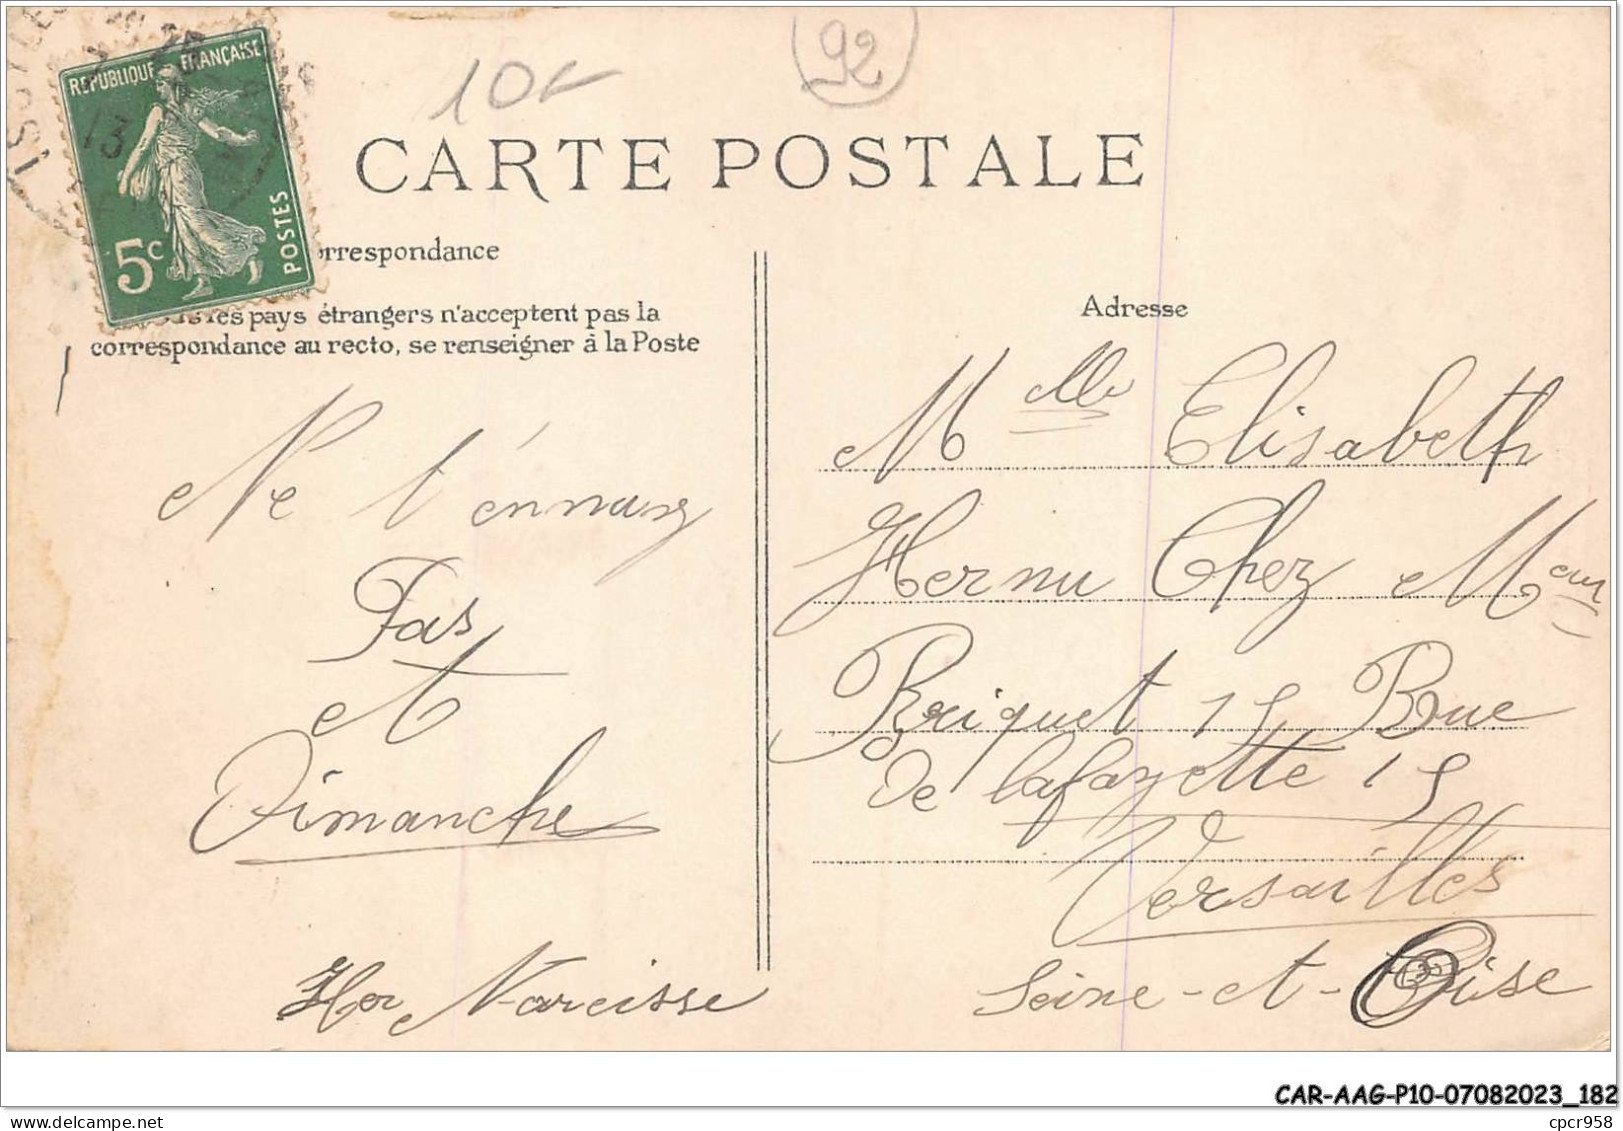 10
92
REPUBLIQUE FRANÇAISE
5c
POSTES
CARTE POSTALE
orrespondance
les pays étrangers n'acceptent pas la
correspondance au recto, se renseigner à la Poste
Adresse
Ne t'énnuis
Pas
et
Dimanche
Her Narcisse
Melle Elisabeth
Hernu Chez Meur
Briquet 15 Rue
De lafayette 15
Versailles
Seine-et-Oise
CAR-AAG-P10-07082023_182
cpcr958